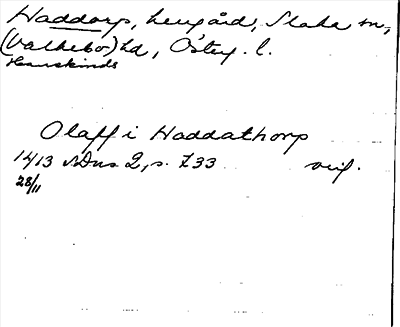 Haddorp, herrgård, Slaka sn,
(Valkebo) hd, Österg. l.
Hanekinds
Olaff i Haddathorp
1413 SDns 2, s. 733 avs.
28/11